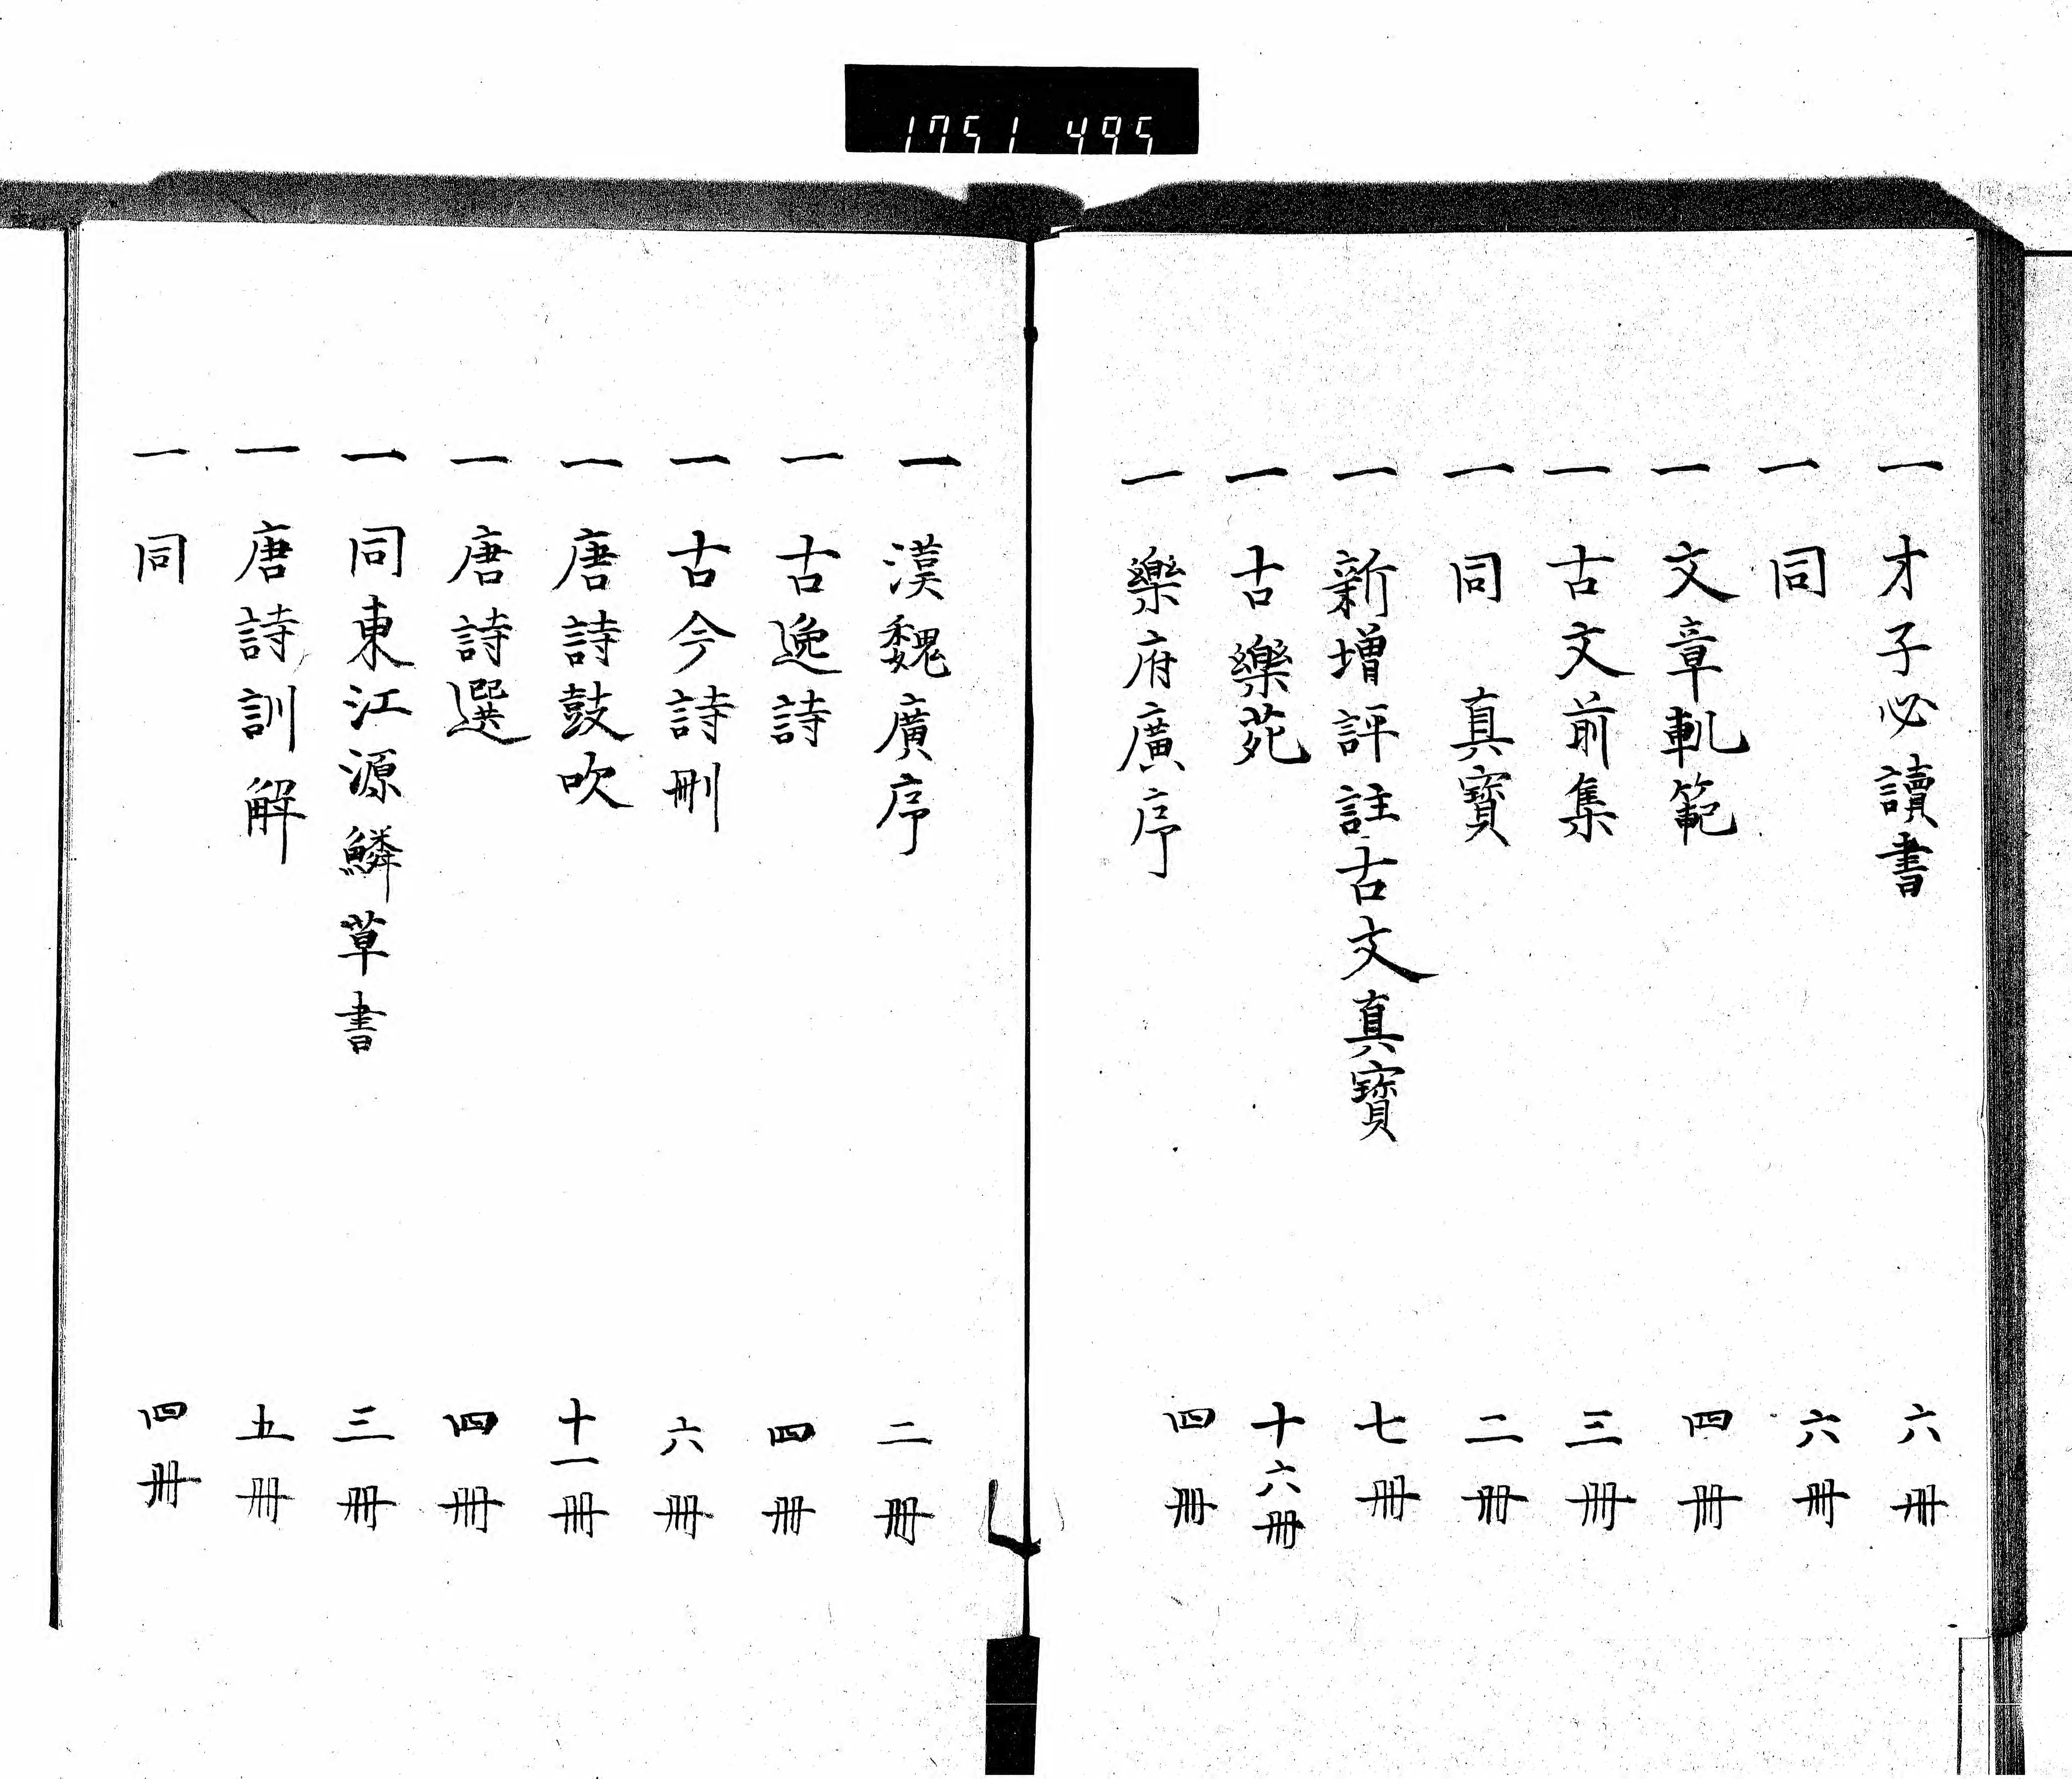 1751 495
一 才子必讀書 六冊
一 同 六冊
一 文章軌範 四冊
一 古文前集 三冊
一 同 真寳 二冊
一 新增評註古文真寳 七冊
一 古樂苑 十六冊
一 樂府廣序 四冊
一 漢魏廣序 二冊
一 古逸詩 四冊
一 古今詩刪 六冊
一 唐詩鼓吹 十一冊
一 唐詩選 四冊
一 同東江源鱗草書 三冊
一 唐詩訓解 五冊
一 同 四冊